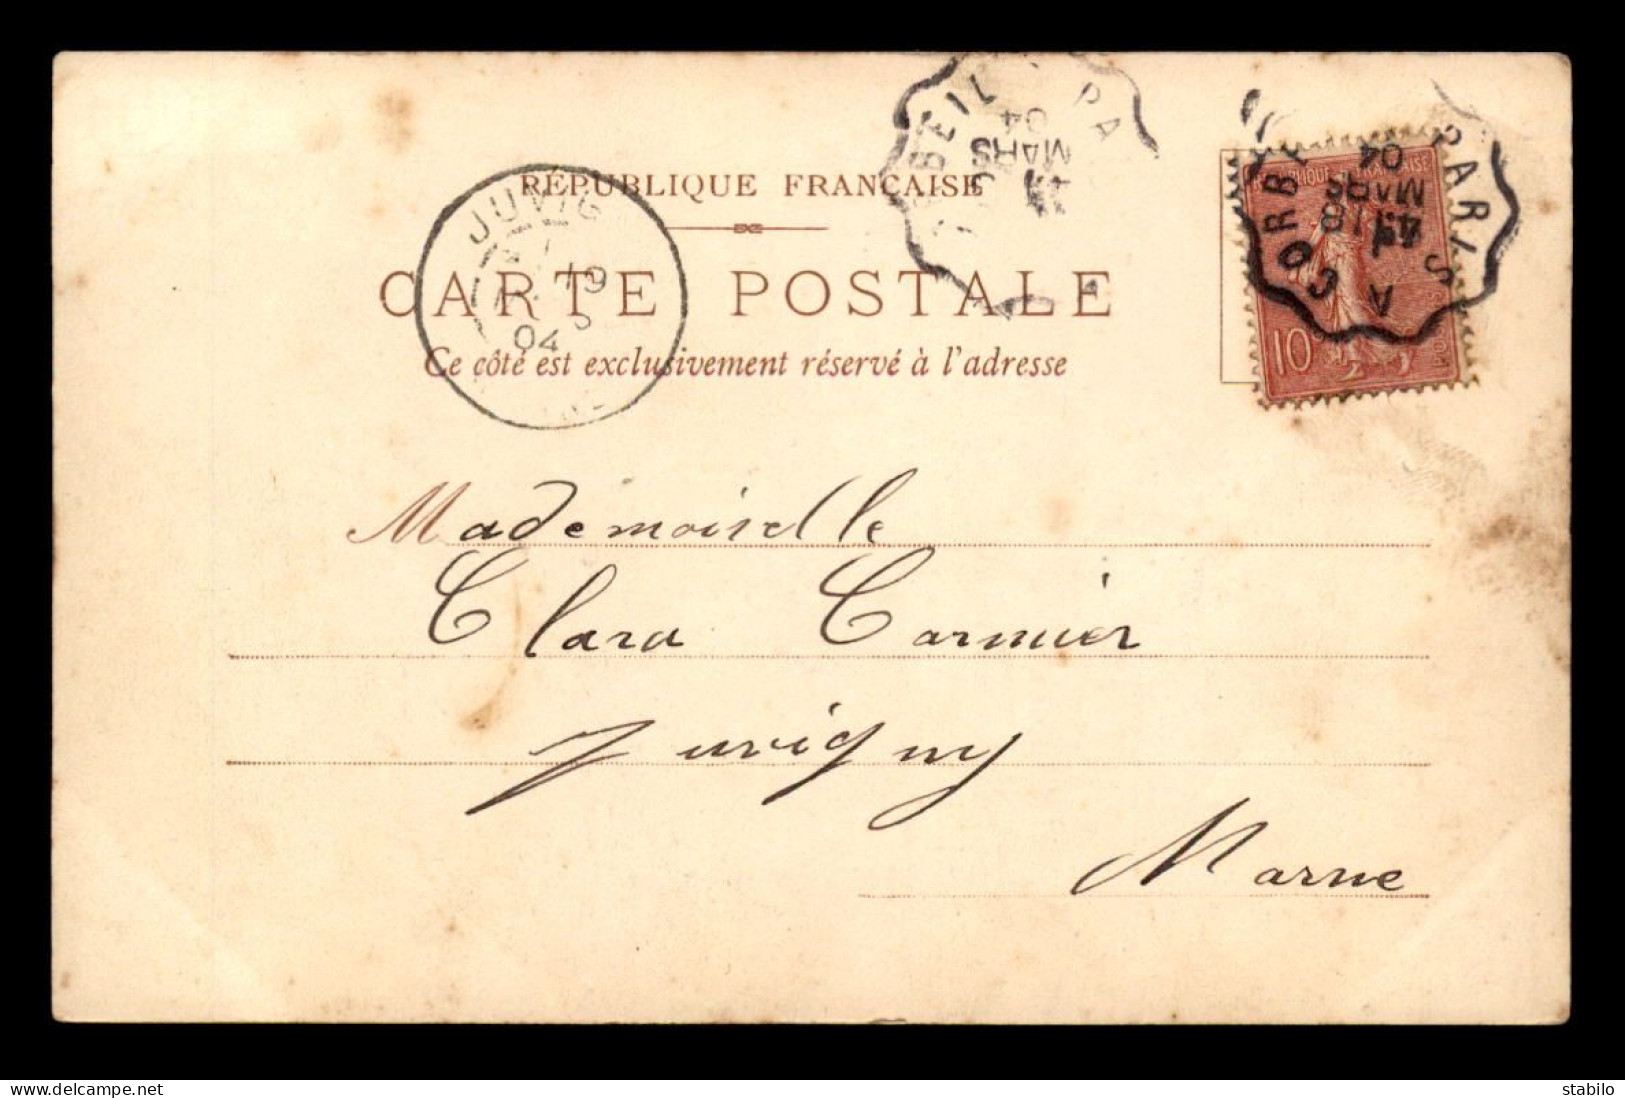 RÉPUBLIQUE FRANÇAISE
CARTE POSTALE
Ce côté est exclusivement réservé à l'adresse
JUVIG
19
04
BEIL PA
MARS
04
CORBE A PARIS
18
MARS
04
10
Mademoiselle
Clara Carmier
Juvigny
Marne
stabilo
www.delcampe.net